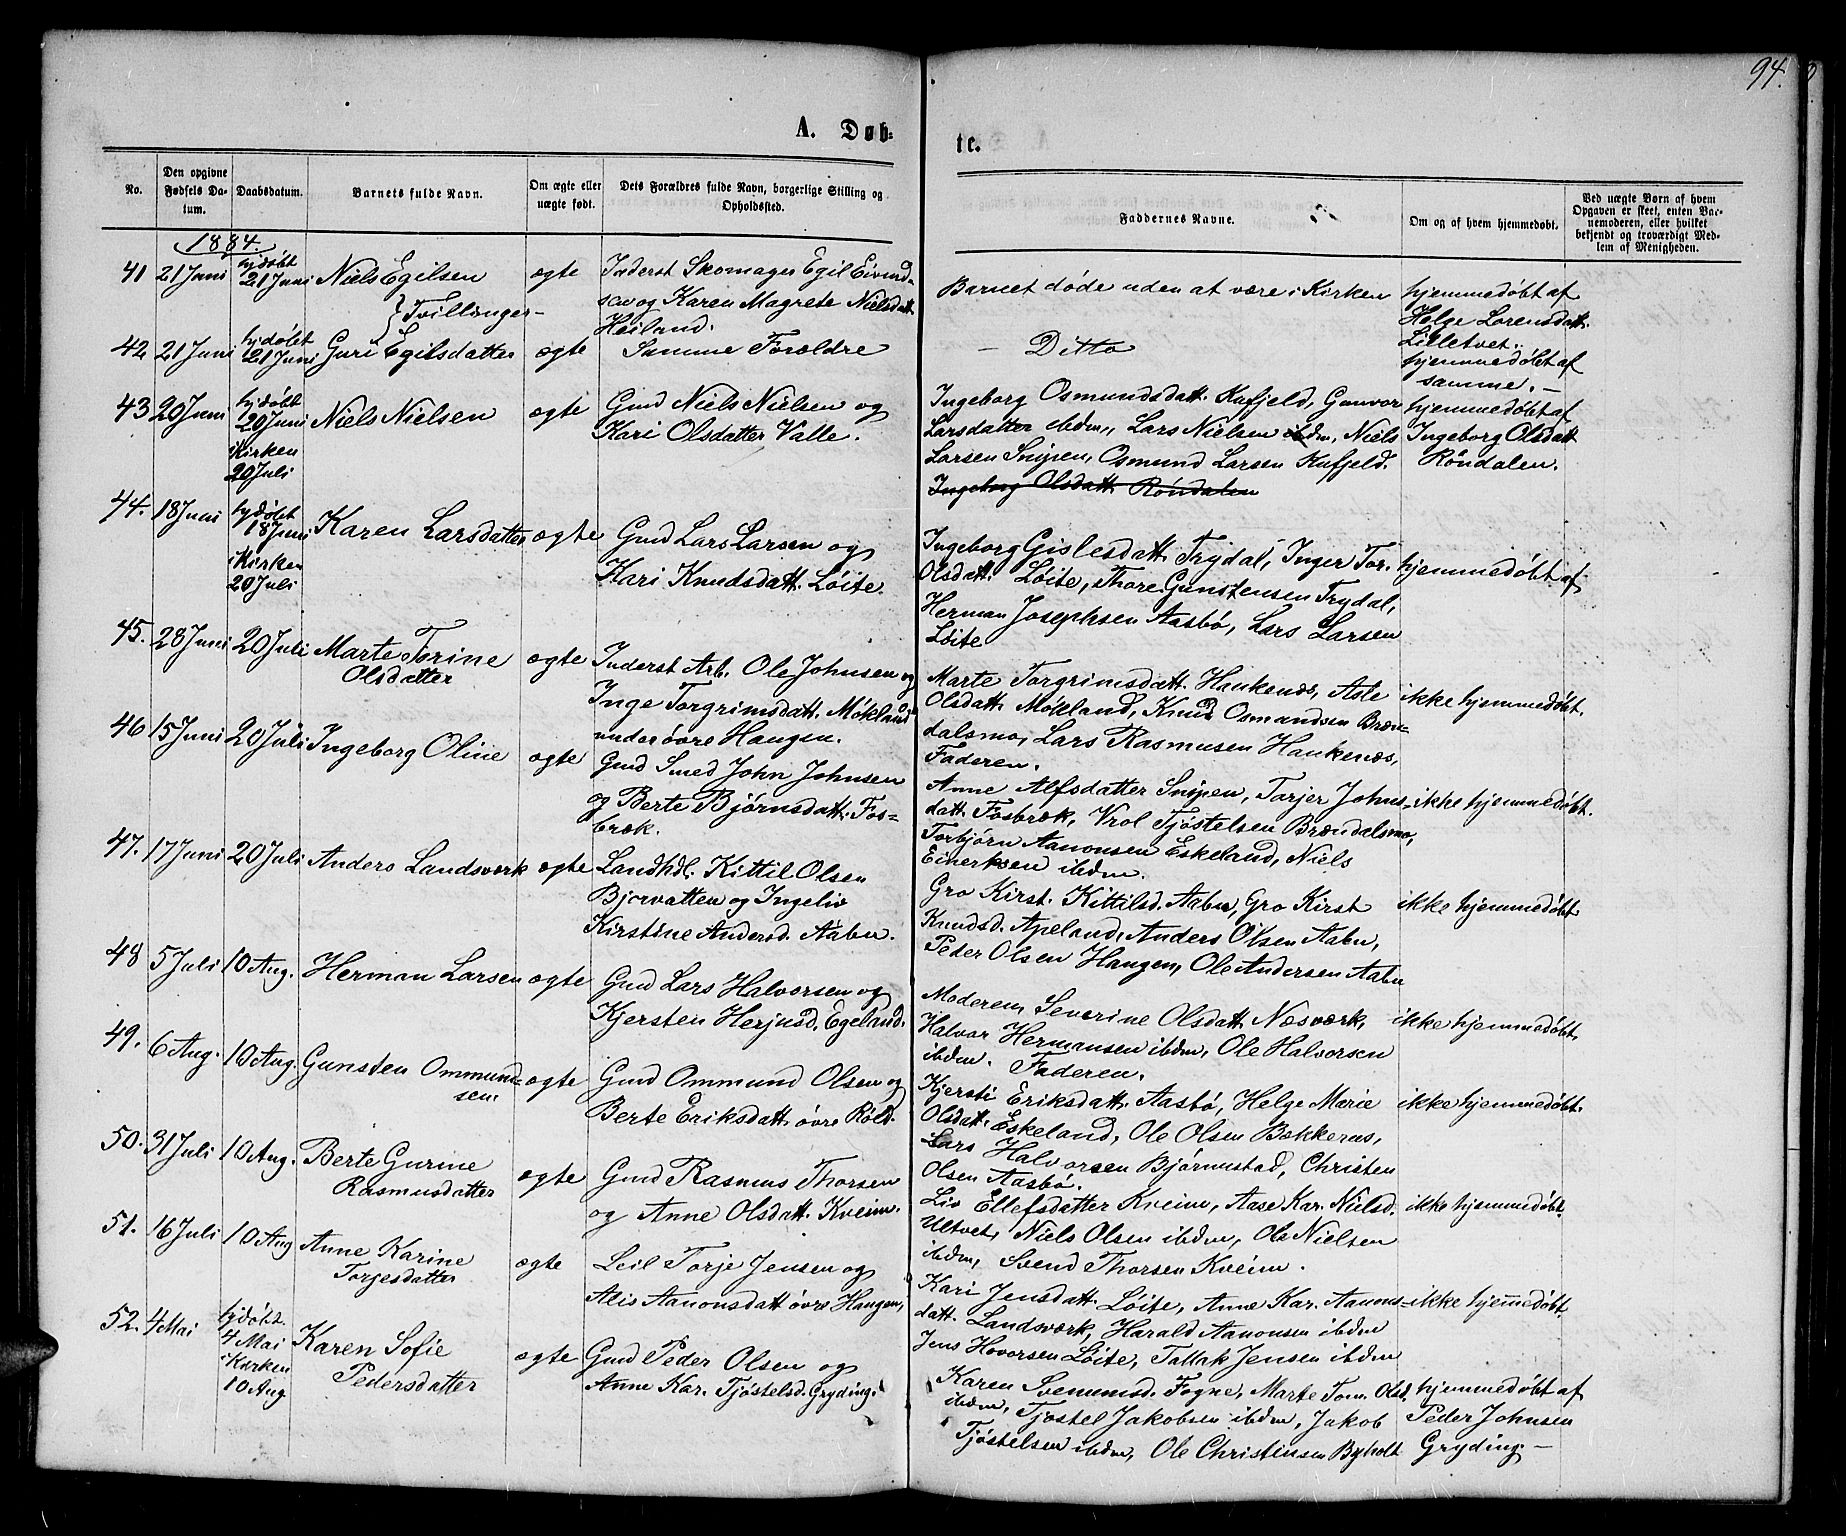 94.
A. Døb-
te.
No.
Den opgivne Fødsels Da-tum.
Daabsdatum.
Barnets fulde Navn.
Om ægte eller uægte født.
Dets Forældres fulde Navn, borgerlige Stilling og Opholdssted.
Faddernes Navne.
Om og af hvem hjemmedøbt.
Ved uægte Børn af hvem Opgaven er skeet, enten Bar-nemoderen, eller hvilket bekjendt og troværdigt Med-lem af Menigheden.
1884.
41 21 Juni hjdøbt 21 Juni Niels Egilsen ægte Inderst Skomager Egil Eivind-
sen og Karen Magrete Nielsdatt.
Heiland.
} Tvillinger -
Barnet døde uden at være i Kirken
hjemmedøbt af
Helge Lorensdatt.
Lilletvet.
42 21 Juni hjdøbt 21 Juni Guri Egilsdatter ægte Samme Forældre
- Ditto
hjemmedøbt af
samme. -
43 20 Juni hjdøbt 20 Juni i Kirken 20 Juli Niels Nielsen ægte Gmd Niels Nielsen og
Kari Olsdatter Valle.
Ingeborg Osmundsdatt. Kufjeld, Gunvor
Larsdatter ibdm, Lars Nielsen ibdm, Niels
Larsen Snipen, Osmund Larsen Kufjeld.
Ingeborg Olsdatt. Röndalen
hjemmedøbt af
Ingeborg Olsdatt
Röndalen.
44. 18 Juni hjdøbt 18 Juni i Kirken 20 Juli Karen Larsdatter ægte Gmd Lars Larsen og
Kari Knudsdatt. Löite.
Ingeborg Gislesdatt. Trydal, Inger Tor.
Olsdatt. Löite, Thore Gunstensen Trydal,
Herman Josephsen Aasbö, Lars Larsen
Löite
hjemmedøbt af
45. 28 Juni 20 Juli Marte Torine
Olsdatter ægte Inderst Arb. Ole Johnsen og
Inge Torgrimsdatt. Møkland
under övre Haugen.
Marte Torgrimsdatt. Haukenæs, Asle
Olsdatt. Møkland, Knud Osmundsen Bræn-
dalsmo, Lars Rasmusen Haukenæs,
Faderen.
ikke hjemmedøbt.
46 15 Juni 20 Juli Ingeborg Oline ægte Gmd Smed John Johnsen
og Berte Björnsdatt. Fos-
bræk.
Anne Alfsdatter Snipen, Torjer Johns-
datt. Fosbræk, Vrol Tjöstelsen Brændalsmo,
Torbjörn Aanonsen Eskeland, Niels
Einerksen ibdm.
ikke hjemmedøbt.
47. 17 Juni 20 Juli Anders Landsverk ægte Landhdl. Kittil Olsen
Bjorvatten og Ingeliv
Kirstine Andersd. Aabu.
Gro Kirst. Kittilsd. Aabu, Gro Kirst
Knudsd. Apeland, Anders Olsen Aabu,
Peder Olsen Haugen, Ole Andersen Aabu
ikke hjemmedøbt
48 5 Juli 10 Aug. Herman Larsen ægte Gmd Lars Halvorsen og
Kjersten Herjusd. Egeland.
Moderen, Severine Olsdatt. Næsværk,
Halvor Hermansen ibdm, Ole Halvorsen
ibdm. Faderen.
ikke hjemmedøbt.
49. 6 Aug. 10 Aug. Gunsten Ommund-
sen. ægte Gmd Ommund Olsen og
Berte Eriksdatt. övre Röld.
Kjersti Eriksdatt. Aasbö, Helge Marie
Olsdatt. Eskeland, Ole Olsen Bøkkenæs,
Lars Halvorsen Björnustad, Christen
Olsen Aasbö.
ikke hjemmedøbt.
50. 31 Juli 10 Aug. Berte Gurine
Rasmusdatter ægte Gmd Rasmus Thorsen
og Anne Olsdatt. Kveim.
Liv Ellefsdatter Kveim, Aase Kar. Nielsd.
Ultvet, Niels Olsen ibdm, Ole Nielsen
ibdm, Svend Thorsen Kveim.
ikke hjemmedøbt.
51. 16 Juli 10 Aug Anne Karine
Torjesdatter ægte Leil Torje Jensen og
Alis Aanonsdatt övre Haugen,
Kari Jensdatt. Löite, Anne Kar. Aanons-
datt. Landsværk, Harald Aanonsen ibdm
Jens Hovorsen Löite, Tallak Jensen ibdm
ikke hjemmedøbt.
52. 4 Mai hjdøbt. 4 Mai i Kirken 10 Aug Karen Sofie
Pedersdatter ægte Gmd Peder Olsen og
Anne Kar. Tjöstelsd. Gryding.
Karen Svenumsd. Fogne, Marte Tom. Olsd.
ibdm, Tjöstel Jakobsen ibdm, Jakob
Tjöstelsen ibdm, Ole Christensen Byholt
hjemmedøbt af
Peder Johnsen
Gryding. -